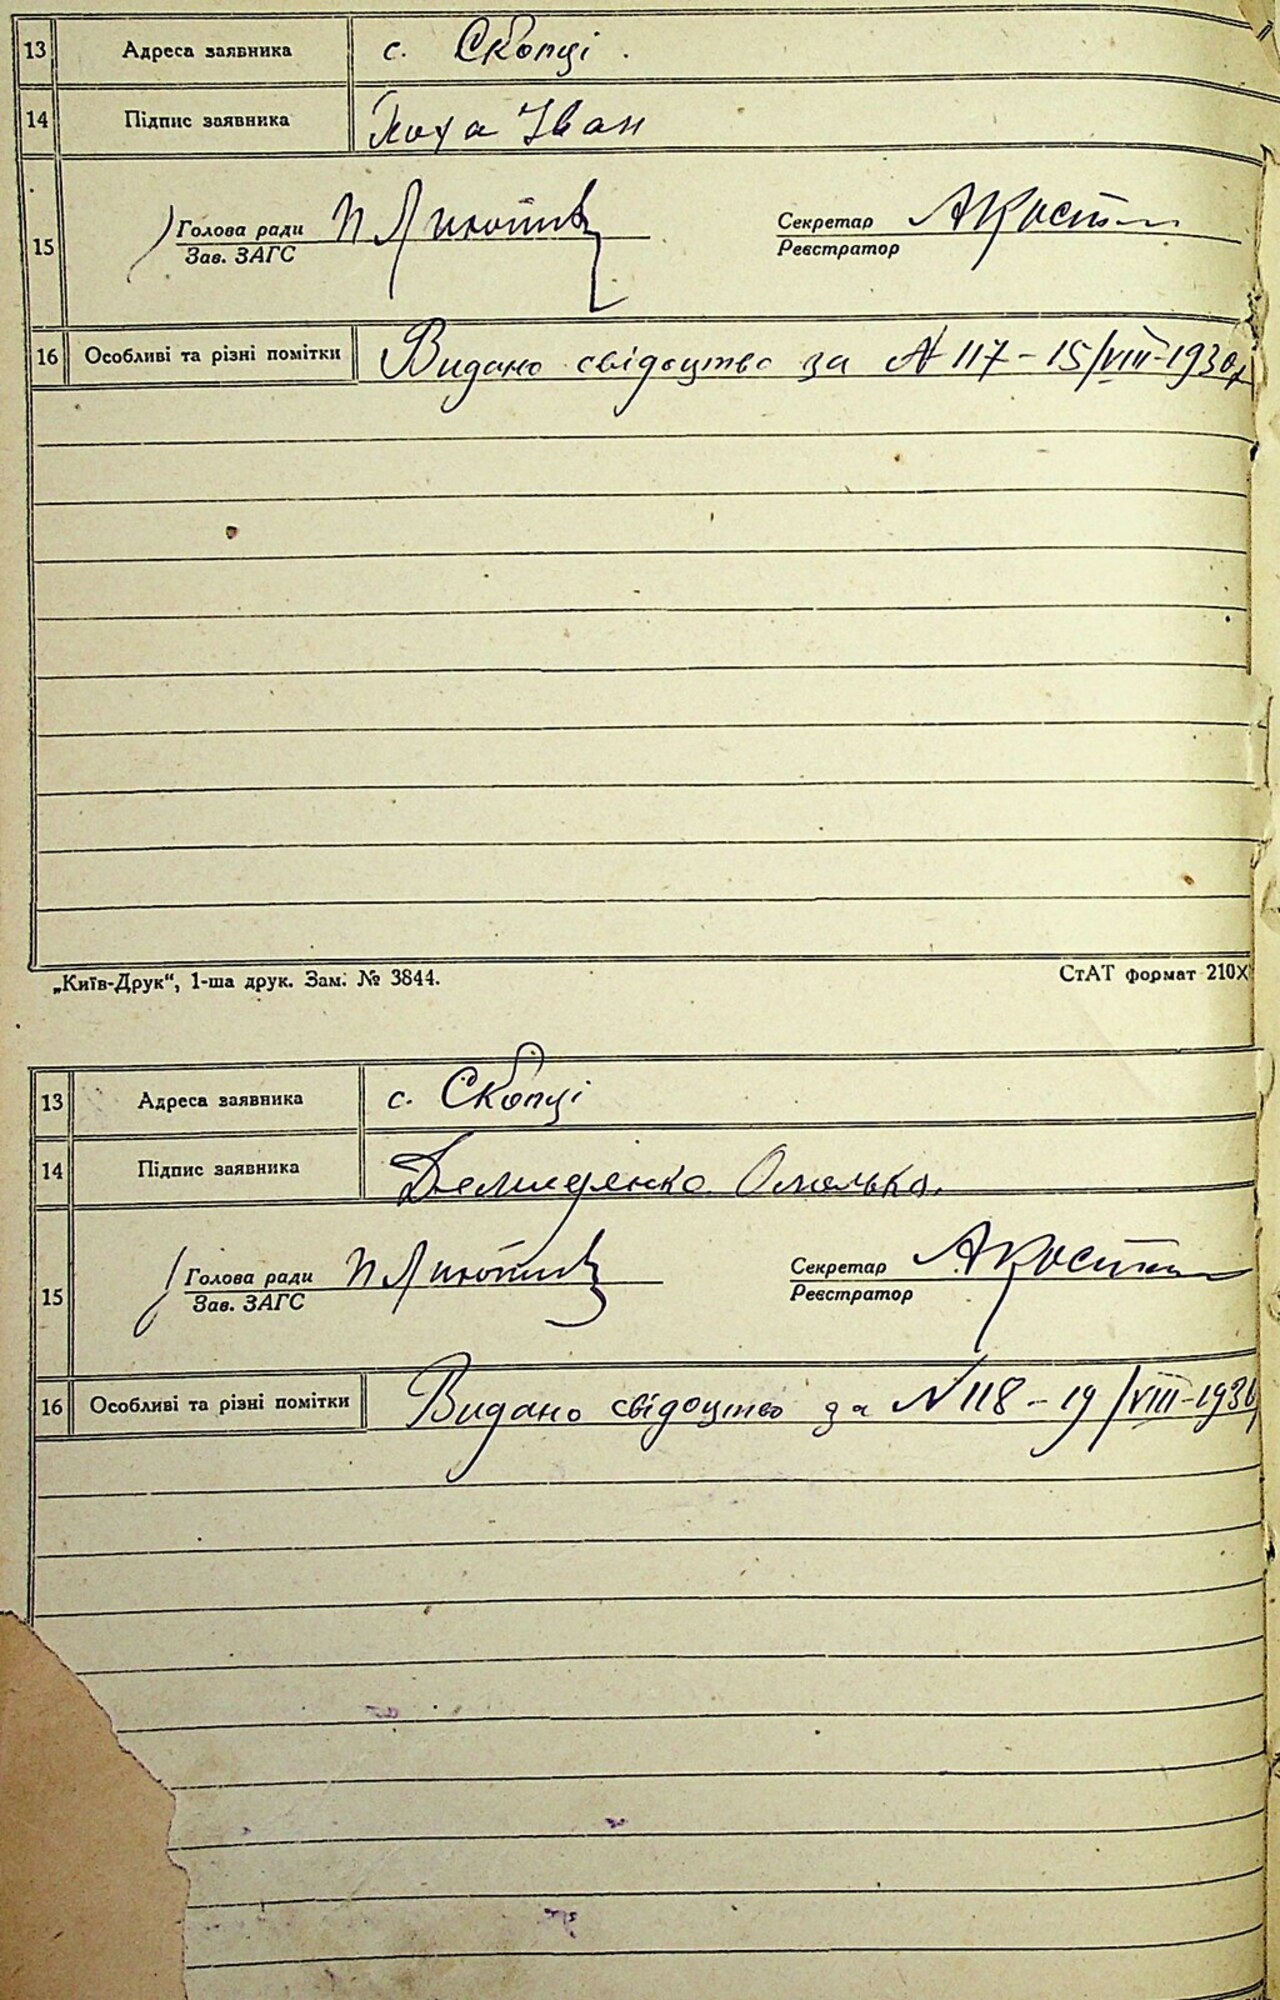 13 Адреса заявника с. Скопці.
14 Підпис заявника Коха Іван
15 Голова ради Секретар
Зав. ЗАГС Реєстратор
16 Особливі та різні помітки Видано свідоцтво за № 117 – 15/VIII–1930р
„Київ-Друк“, 1-ша друк. Зам. № 3844. СтАТ формат 210X
13 Адреса заявника с. Скопці
14 Підпис заявника Демиденко
15 Голова ради Секретар
Зав. ЗАГС Реєстратор
16 Особливі та різні помітки Видано свідоцтво за № 118 – 19/VIII–1930